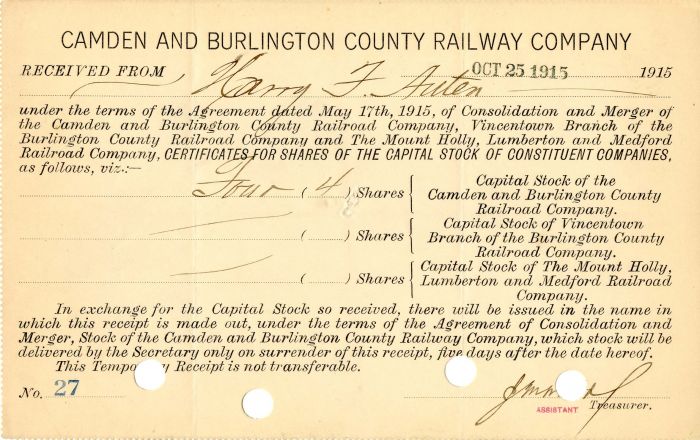 CAMDEN AND BURLINGTON COUNTY RAILWAY COMPANY
OCT 25 1915
RECEIVED FROM Harry F. Auten 1915
under the terms of the Agreement dated May 17th, 1915, of Consolidation and Merger of
the Camden and Burlington County Railroad Company, Vincentown Branch of the
Burlington County Railroad Company and The Mount Holly, Lumberton and Medford
Railroad Company, CERTIFICATES FOR SHARES OF THE CAPITAL STOCK OF CONSTITUENT COMPANIES,
as follows, viz:—
Four (4) Shares { Capital Stock of the
Camden and Burlington County
Railroad Company.
( ) Shares { Capital Stock of Vincentown
Branch of the Burlington County
Railroad Company.
( ) Shares { Capital Stock of The Mount Holly,
Lumberton and Medford Railroad
Company.
In exchange for the Capital Stock so received, there will be issued in the name in
which this receipt is made out, under the terms of the Agreement of Consolidation and
Merger, Stock of the Camden and Burlington County Railway Company, which stock will be
delivered by the Secretary only on surrender of this receipt, five days after the date hereof.
This Temporary Receipt is not transferable.
No. 27
ASSISTANT Treasurer.